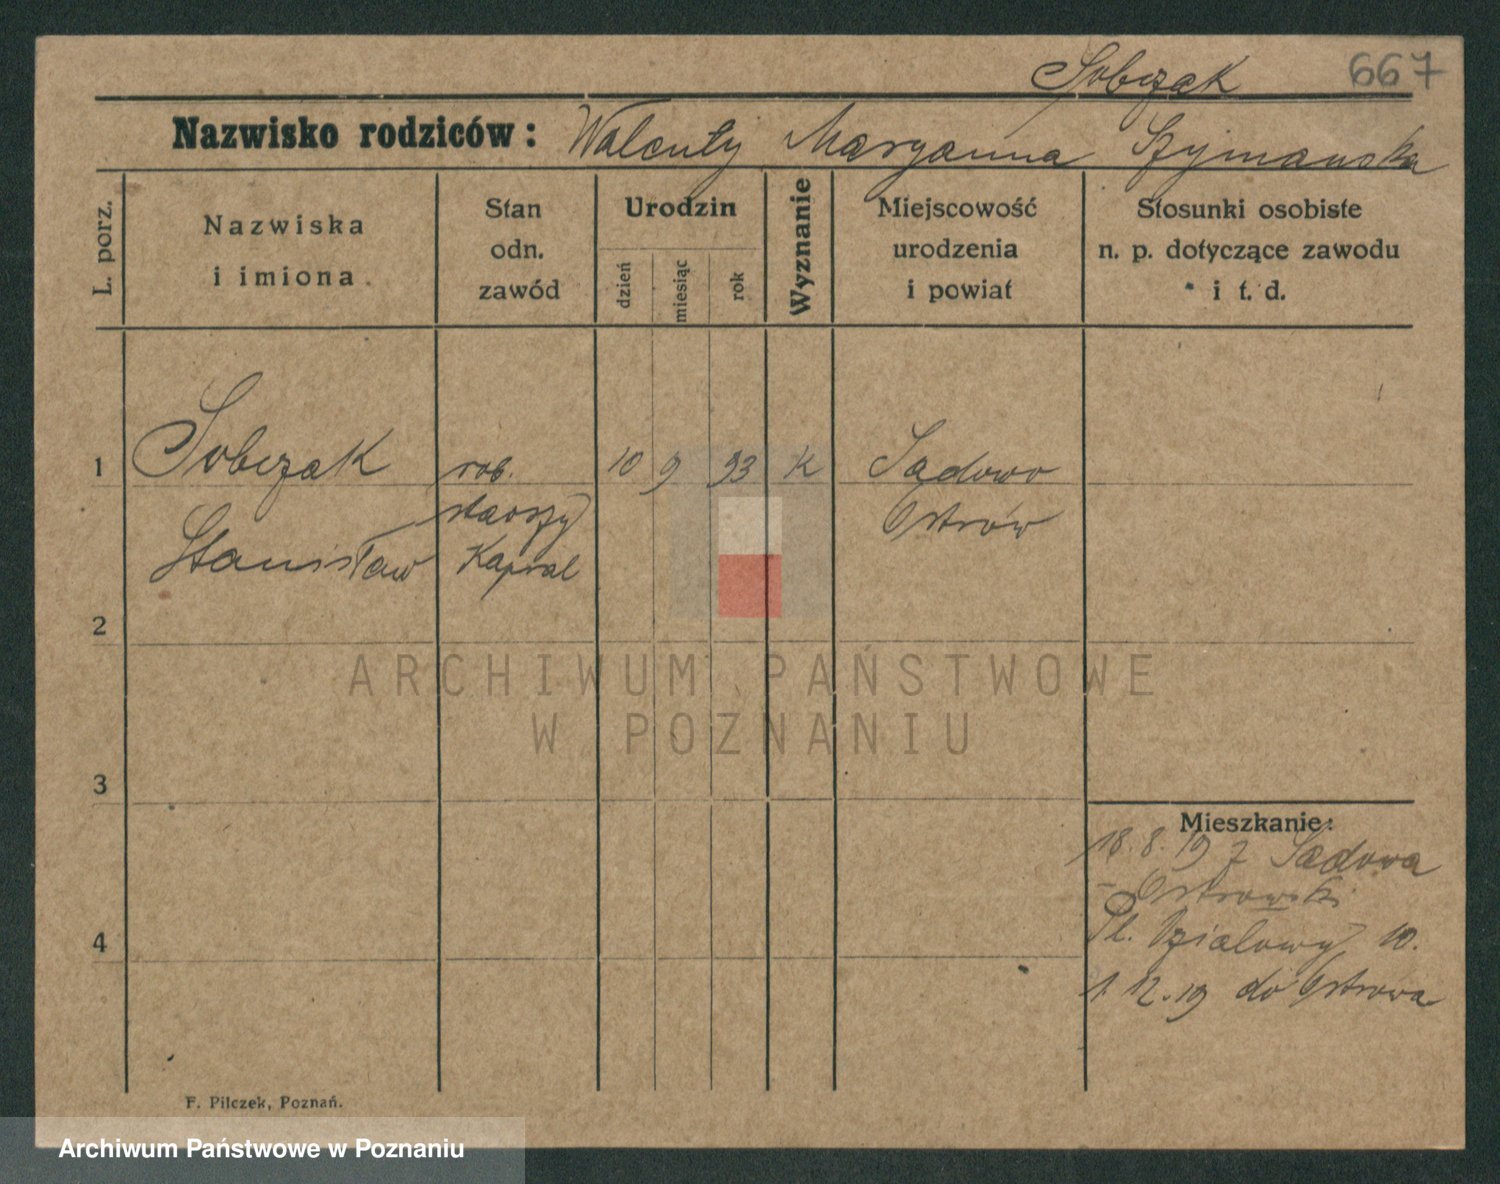 Sobczak 667
Nazwisko rodziców: Walenty Maryanna Szymanska
L. porz.
Nazwiska
i imiona
Stan
odn.
zawód
Urodzin
dzień
miesiąc
rok
Wyznanie
Miejscowość
urodzenia
i powiat
Stosunki osobiste
n. p. dotyczące zawodu
i t. d.
1 Sobczak rob. 10 9 93 K Sadowo
starszy Ostrów
Stanisław Kapral
2
ARCHIWUM PAŃSTWOWE
W POZNANIU
3
Mieszkanie:
18. 8. 19 z Sadowa
- Ostrowski
4
Pl. Działowy 10.
1. 12. 19 do Ostrowa
F. Pilczek, Poznań.
Archiwum Państwowe w Poznaniu